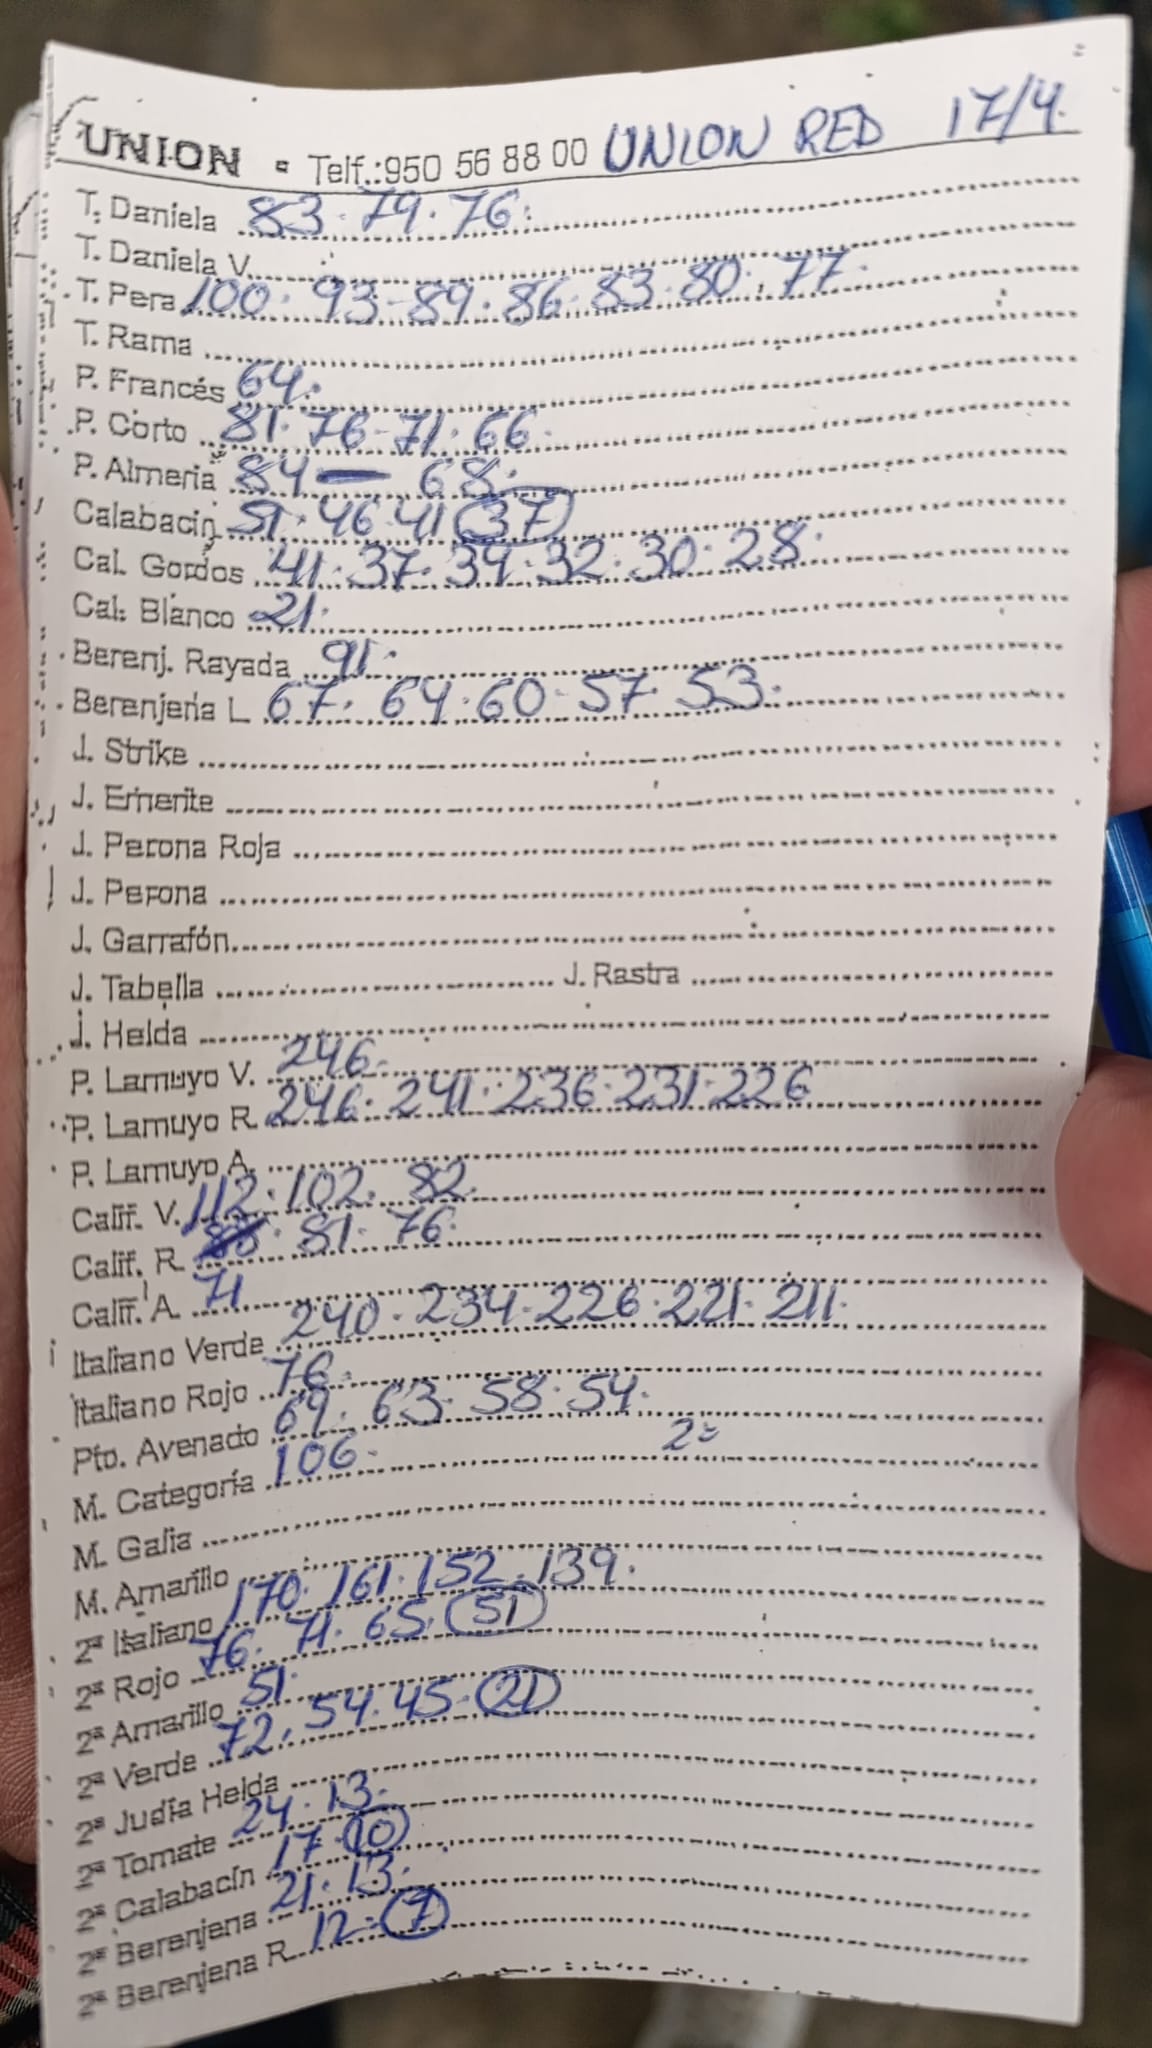 UNION - Telf.:950 56 88 00 UNION RED 17/4.
T. Daniela 83 · 79 · 76.
T. Daniela V.
T. Pera 100 · 93 - 89 · 86 · 83 · 80 · 77.
T. Rama
P. Francés 64.
P. Corto 81 · 76 - 71 · 66.
P. Almeria 84 — 68.
Calabacin 51 · 46 · 41 37
Cal. Gordos 41 · 37 · 34 · 32 · 30 · 28.
Cal. Blanco 21.
Berenj. Rayada 91.
Berenjena L 67 · 64 · 60 - 57 · 53.
J. Strike
J. Emerite
J. Perona Roja
J. Perona
J. Garrafón
J. Tabella J. Rastra
J. Helda
P. Lamuyo V. 246.
P. Lamuyo R. 246 · 241 · 236 · 231 · 226
P. Lamuyo A.
Calif. V. 112 · 102 · 82.
Calif. R. 81 · 76.
Calif. A. 71
Italiano Verde 240 · 234 - 226 · 221 · 211.
Italiano Rojo 76.
Pto. Avenado 69 · 63 · 58 · 54.
M. Categoría 106.
M. Galia
M. Amarillo
2ª Italiano 170 · 161 · 152 · 139.
2ª Rojo 76 · 71 · 65 · 51
2ª Amarillo 51.
2ª Verde 72 · 54 · 45 - 21
2ª Judía Helda
2ª Tomate 24 · 13.
2ª Calabacín 17 · 10
2ª Berenjena 21 · 13.
2ª Berenjena R. 12 - 7